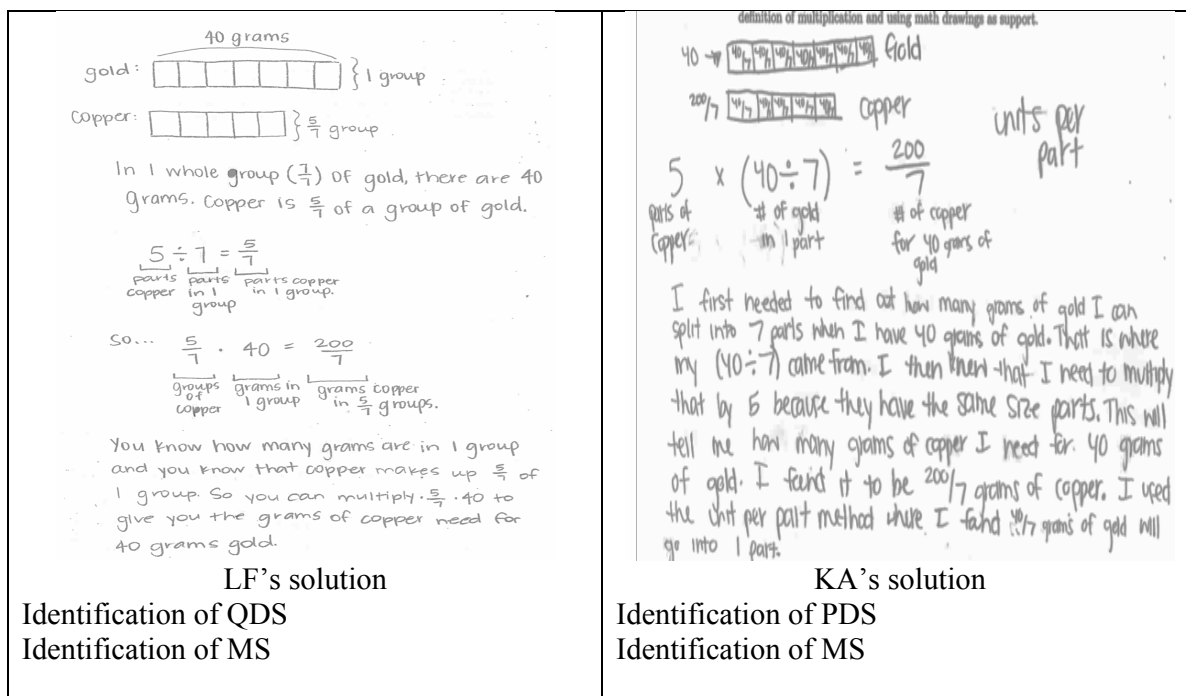 40 grams
gold: } 1 group
copper: } 5/7 group
In 1 whole group (7/7) of gold, there are 40
grams. Copper is 5/7 of a group of gold.
5 ÷ 7 = 5/7
parts parts parts copper
copper in 1 in 1 group.
group
So... 5/7 · 40 = 200/7
groups grams in grams copper
of 1 group in 5/7 groups.
copper
You know how many grams are in 1 group
and you know that copper makes up 5/7 of
1 group. So you can multiply · 5/7 · 40 to
give you the grams of copper need for
40 grams gold.
LF's solution
Identification of QDS
Identification of MS
definition of multiplication and using math drawings as support.
40 → 40/7 40/7 40/7 40/7 40/7 40/7 40/7 Gold
200/7 40/7 40/7 40/7 40/7 40/7 copper
units per
part
5 × (40÷7) = 200/7
parts of # of gold # of copper
copper in 1 part for 40 grams of
gold
I first needed to find out how many grams of gold I can
split into 7 parts when I have 40 grams of gold. That is where
my (40÷7) came from. I then knew that I need to multiply
that by 5 because they have the same size parts. This will
tell me how many grams of copper I need for 40 grams
of gold. I found it to be 200/7 grams of copper. I used
the unit per part method where I found 40/7 grams of gold will
go into 1 part.
KA's solution
Identification of PDS
Identification of MS